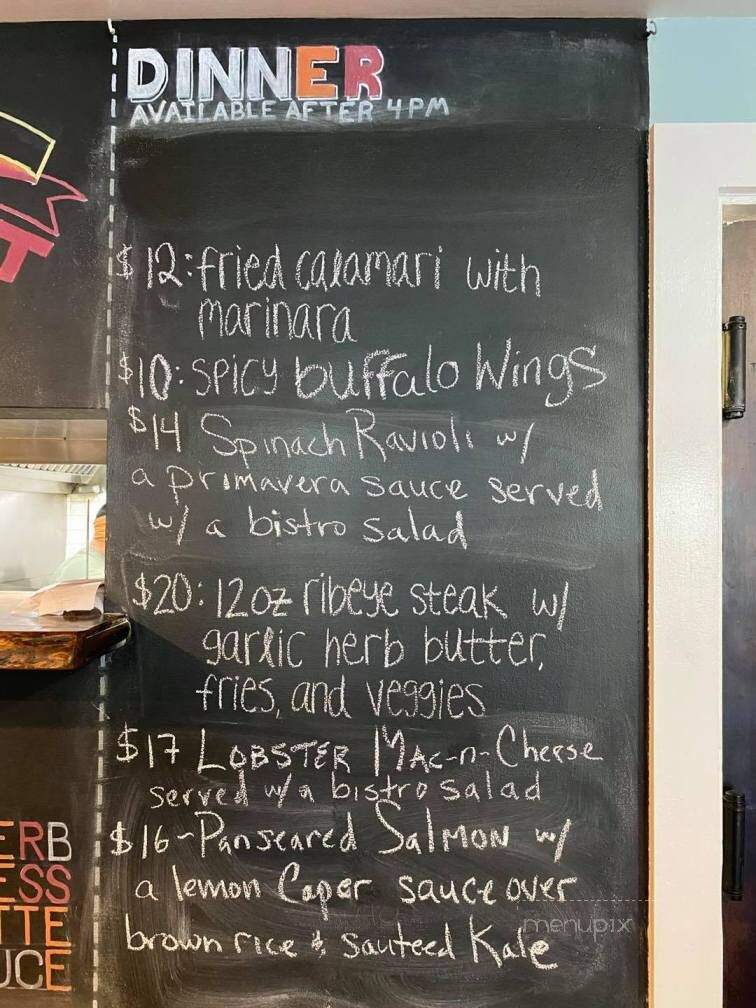 DINNER
AVAILABLE AFTER 4PM
$12: fried calamari with
marinara
$10: SPICY buffalo Wings
$14 Spinach Ravioli w/
a primavera sauce served
w/ a bistro salad
$20: 12oz ribeye steak w/
garlic herb butter,
fries, and veggies
$17 LOBSTER MAC-n-Cheese
served w/a bistro salad
$16-Panseared SalMON w/
a lemon Caper sauce over
brown rice & sauteed Kale
T
ERB
ESS
TTE
UCE
menupix